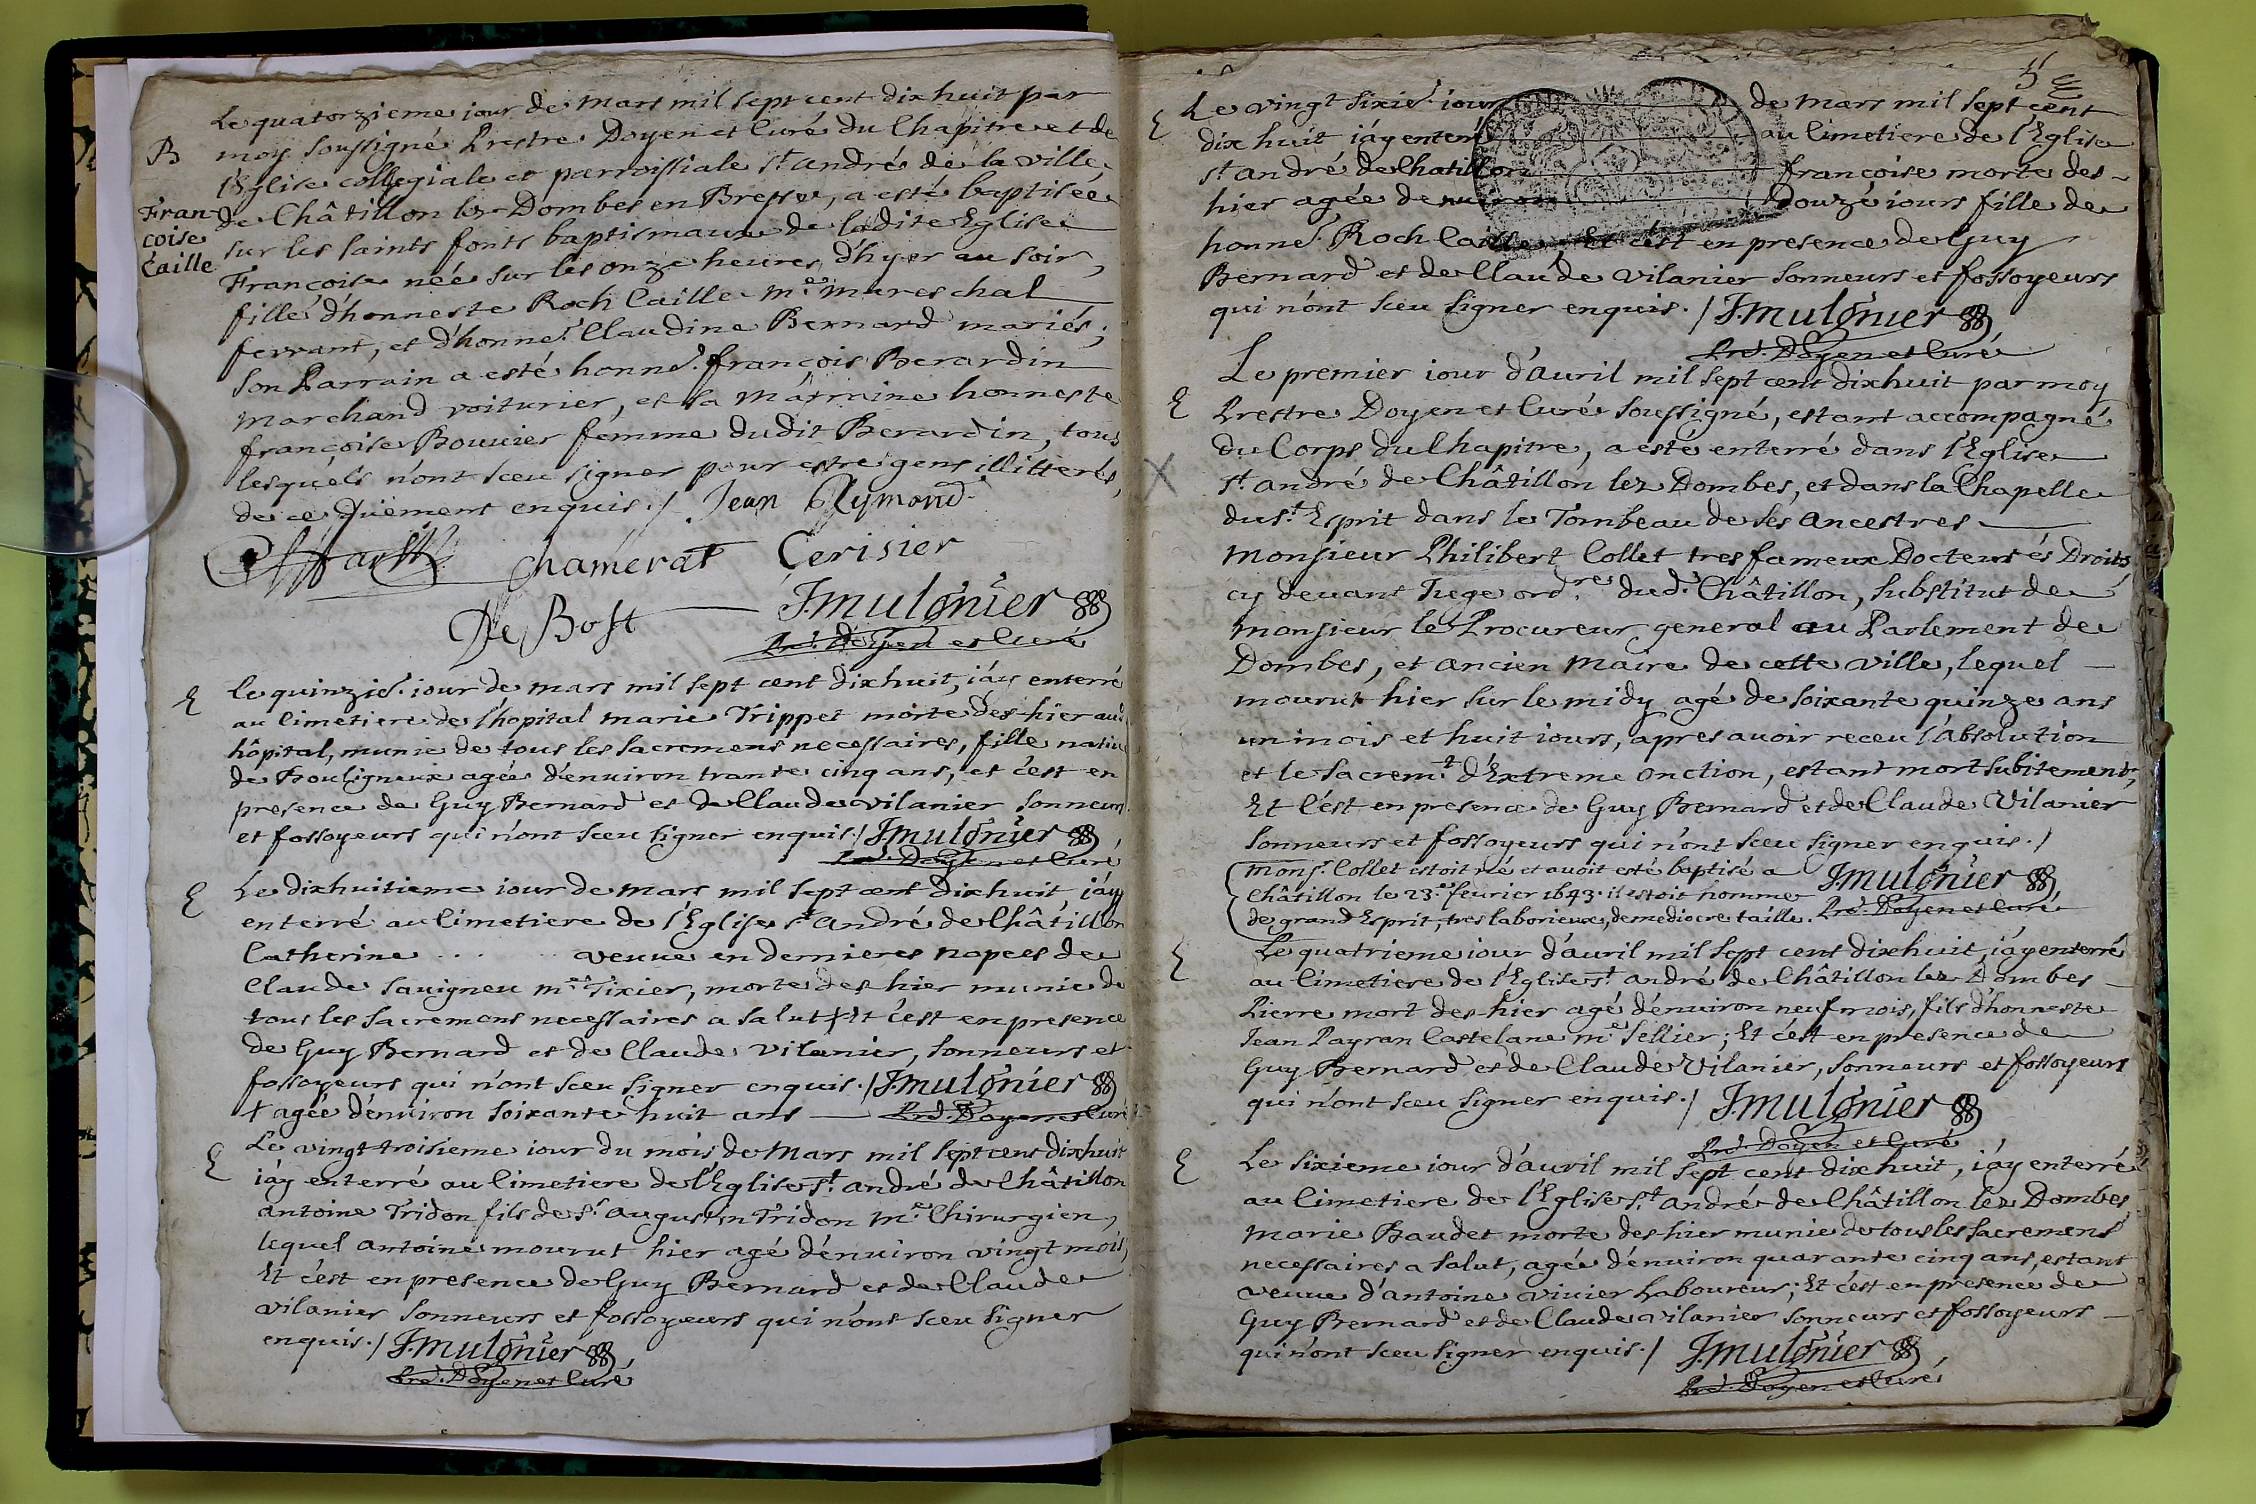 Le quatorzieme jour de Mars mil sept cent dix huit par
B
moy soussigné Prestre Doyen et Curé du Chapitre et de
l'Eglise collegiale et parroissiale st andré de la ville
Fran-
coise
Caille
de Châtillon lez Dombes en Bresse, a esté baptisée
sur les saints fonts baptismaux de ladite Eglise
Francoise née sur les onze heures d'hyer au soir,
fille d'honneste Roch Caille me mareschal
ferrant, et d'honne. Claudine Bernard mariés;
son Parrain a esté honne. françois Berardin
marchand voiturier, et sa Marraine honneste
françoise Bouvier femme dudit Berardin, tous
lesquels n'ont sceu signer pour estre gens illitterés,
de ce duement enquis./ Jean Aymond
Chamerat Cerisier
De Bost J. mulonier
Pre. Doyen et Curé
E
le quinzie. iour de mars mil sept cent dixhuit, i'ay enterré
au Cimetiere de l'hopital marie Trippet morte des hier aud.
hôpital, munie de tous les sacremens necessaires, fille native
de Bouligneux agée d'environ trante cinq ans, et c'est en
presence de Guy Bernard et de Claude vilanier sonneurs
et fossoyeurs qui n'ont sceu signer enquis./ J. mulonier
Pre. Doyen et Curé
E
Le dixhuitieme iour de mars mil sept cent dixhuit, i'ay
enterré au Cimetiere de l'Eglise st André de Châtillon
Catherine . . . . veuve en dernieres nopces de
Claude Sauigneu me Tixier, morte des hier munie de
tous les sacremens necessaires a salut + Et c'est en presence
de Guy Bernard et de Claude vilanier, sonneurs et
fossoyeurs qui n'ont sceu signer enquis./ J. mulonier
+ agée d'environ soixante huit ans — Pre. Doyen et Curé
E
Le vingt troisieme iour du mois de Mars mil sept cent dixhuit
i'ay enterré au Cimetiere de l'Eglise st. andré de Châtillon
antoine Tridon fils de sr. augustin Tridon me. Chirurgien,
lequel antoine mourut hier agé d'environ vingt mois,
Et c'est en presence de Guy Bernard et de Claude
vilanier sonneurs et fossoyeurs qui n'ont sceu signer
enquis./ J. mulonier
Pre. Doyen et Curé
5
E
Le vingt sixie. iour de Mars mil sept cent
dix huit i'ay enterré au Cimetiere de l'Eglise
st andré de Chatillon françoise morte des
hier agée de douze iours fille de
honne. Roch Caille Et c'est en presence de Guy
Bernard et de Claude vilanier sonneurs et fossoyeurs
qui n'ont sceu signer enquis./ J. mulonier
Pre. Doyen et Curé
Le premier iour d'auril mil sept cent dixhuit par moy
E
Prestre Doyen et Curé soussigné, estant accompagné
du Corps du Chapitre, a esté enterré dans l'Eglise
X
st. andré de Châtillon lez Dombes, et dans la Chapelle
du st. Esprit dans le Tombeau de ses Ancestres
monsieur Philibert Collet tres fameux Docteur és Droits,
cy devant Juge ordre. dud. Châtillon, substitut de
monsieur le Procureur general au Parlement de
Dombes, et ancien Maire de cette ville, lequel
mourut hier sur le midy agé de soixante quinze ans
un mois et huit iours, apres auoir receu l'Absolution
et le sacremt. d'Extreme Onction, estant mort subitement,
Et c'est en presence de Guy Bernard et de Claude Vilanier
sonneurs et fossoyeurs qui n'ont sceu signer enquis./
monsr. Collet estoit né et auoit esté baptisé a
Châtillon le 23e. feurier 1643. il estoit homme
de grand Esprit, tres laborieux, de mediocre taille.
J. mulonier
Pre. Doyen et Curé
E
Le quatrieme iour d'auril mil sept cent dixhuit, i'ay enterré
au Cimetiere de l'Eglise st andré de Châtillon lez Dombes
Pierre mort des hier agé d'enuiron neuf mois, fils d'honneste
Jean Payran Castelane me Sellier; Et c'est en presence de
Guy Bernard et de Claude Vilanier, sonneurs et fossoyeurs
qui n'ont sceu signer enquis./ J. mulonier
Pre. Doyen et Curé
E
Le sixieme iour d'auril mil sept cent dixhuit, i'ay enterré
au Cimetiere de l'Eglise st. andré de Châtillon lez Dombes
Marie Baudet morte des hier munie de tous les sacremens
necessaires a salut, agée d'enuiron quarante cinq ans, estant
veuve d'antoine vivier Laboureur; Et c'est en presence de
Guy Bernard et de Claude vilanier sonneurs et fossoyeurs
qui n'ont sceu signer enquis./ J. mulonier
Pre. Doyen et Curé